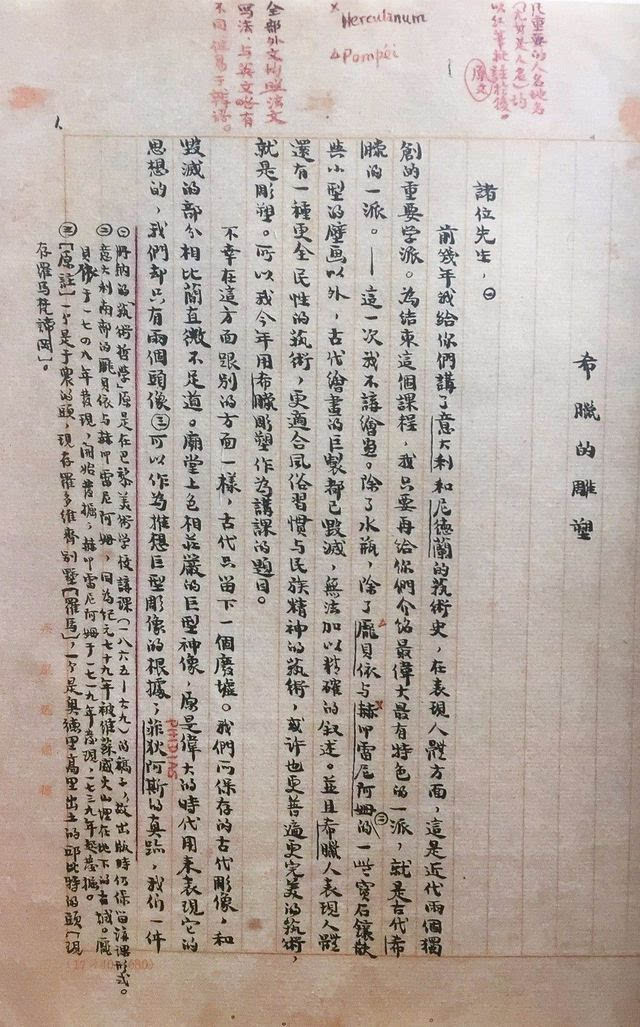 凡重要的人名地名
(尤其是人名)均
以紅筆批註於後。
原文
× Herculanum
△ Pompéi
全部外文均照法文
寫法,与英文略有
不同但易于辨認。
希臘的雕塑
諸位先生,㊀
前幾年我給你們講了意大利和尼德蘭的藝術史,在表現人體方面,這是近代兩個獨
創的重要学派。為結束這個課程,我只要再給你們介紹最偉大最有特色的一派,就是古代希
臘的一派。——這一次我不講繪畫。除了水瓶,除了龐貝依与赫叩雷尼阿姆的㊁一些寶石鑲嵌
与小型的壁画以外,古代繪畫的巨製都已毀滅,無法加以精確的叙述。並且希臘人表現人體
還有一種更全民性的藝術,更適合風俗習慣与民族精神的藝術,或許也更普遍更完美的藝術,
就是彫塑。所以我今年用希臘彫塑作為講課的題目。
不幸在這方面跟別的方面一樣,古代只留下一個廢墟。我們所保存的古代彫像,和
毀滅的部分相比簡直微不足道。廟堂上色相莊嚴的巨型神像,原是偉大的時代用來表現它的
思想的,我們却只有兩個頭像㊂可以作為推想巨型彫像的根據;菲狄阿斯的真蹟,我們一件
PHIDIAS
㊀丹納的「藝術哲學」原是在巴黎美術学校講課(一八六五—六九)的稿子,故出版時仍保留講課形式。
㊁意大利南部的龐貝依与赫叩雷尼阿姆,同為紀元七十九年被維蘇威火山埋在地下的古城。龐
貝依于一七四九年發現,開始發掘;赫叩雷尼阿姆于一七一九年發現,一七三九年起發掘。
㊂[原註]一個是于農的頭,現存羅多維齊別墅[羅馬],一個是奧德里高里出土的邱比特的頭[現
存羅馬梵諦岡]。